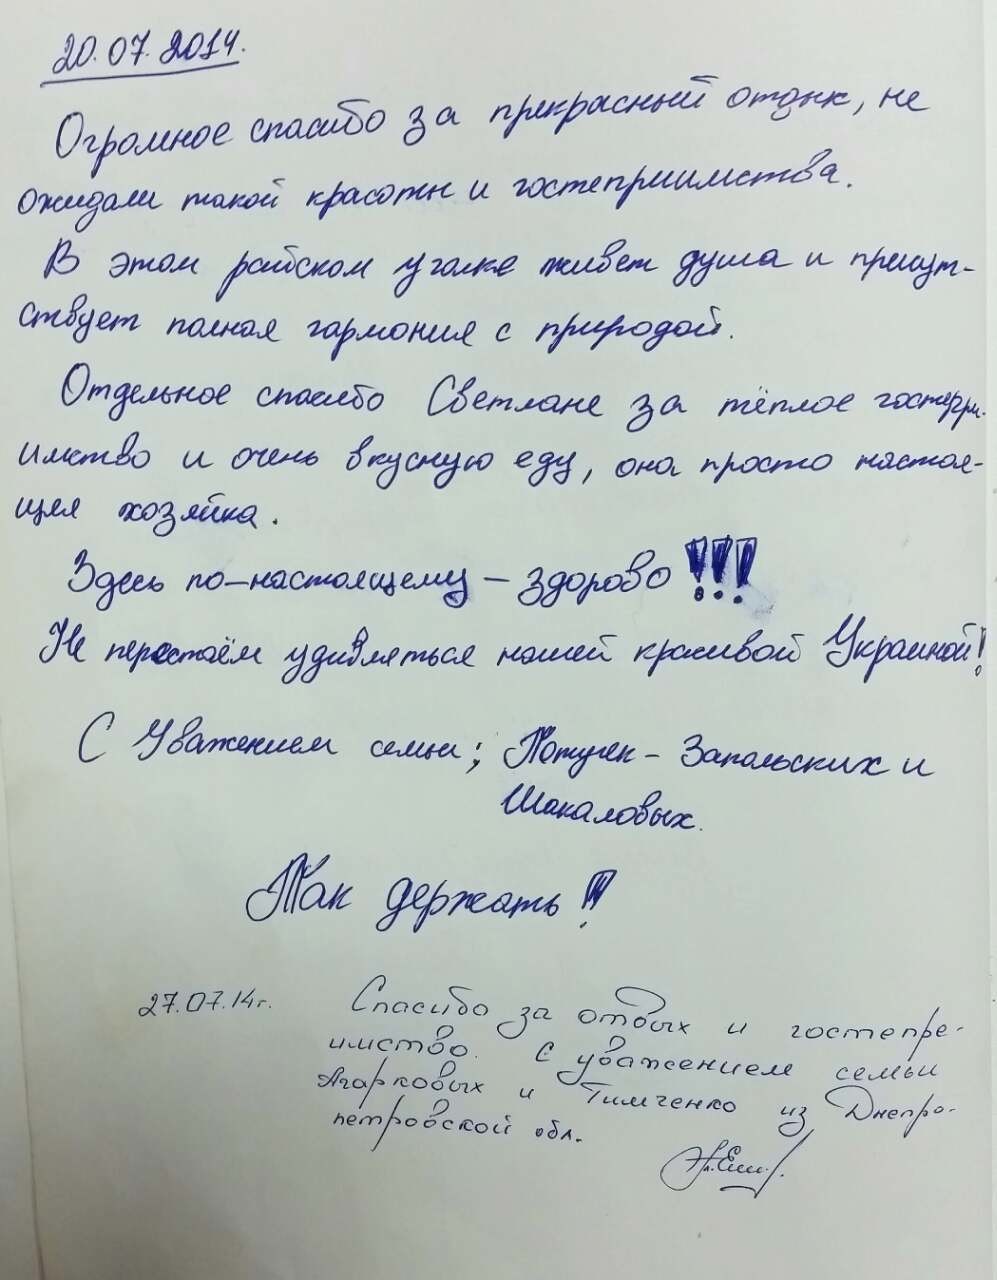 20.07.2014.
Огромное спасибо за прекрасный отдых, не
ожидали такой красоты и гостеприимства.
В этом райском уголке живет душа и присут-
ствует полная гармония с природой.
Отдельное спасибо Светлане за тёплое гостепри-
имство и очень вкусную еду, она просто настоя-
щая хозяйка.
Здесь по-настоящему – здорово!!!
Не перестаём удивляться нашей красивой Украиной!
С Уважением семьи; Потучек - Запольских и
Шакаловых.
Так держать!!!
27.07.14г. Спасибо за отдых и гостепре-
имство. С уважением семьи
Агарковых и Тимченко из Днепро-
петровской обл.